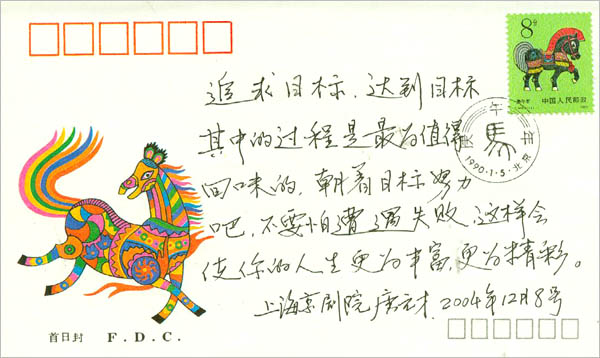 8分
庚午年
中国人民邮政
庚午年
馬
1990·1·5·北京
追求目标、达到目标
其中的过程是最为值得
回味的,朝着目标努力
吧,不要怕遭遇失败,这样会
使你的人生更为丰富,更为精彩。
上海京剧院 唐元才 2004年12月8号
首日封 F. D. C.